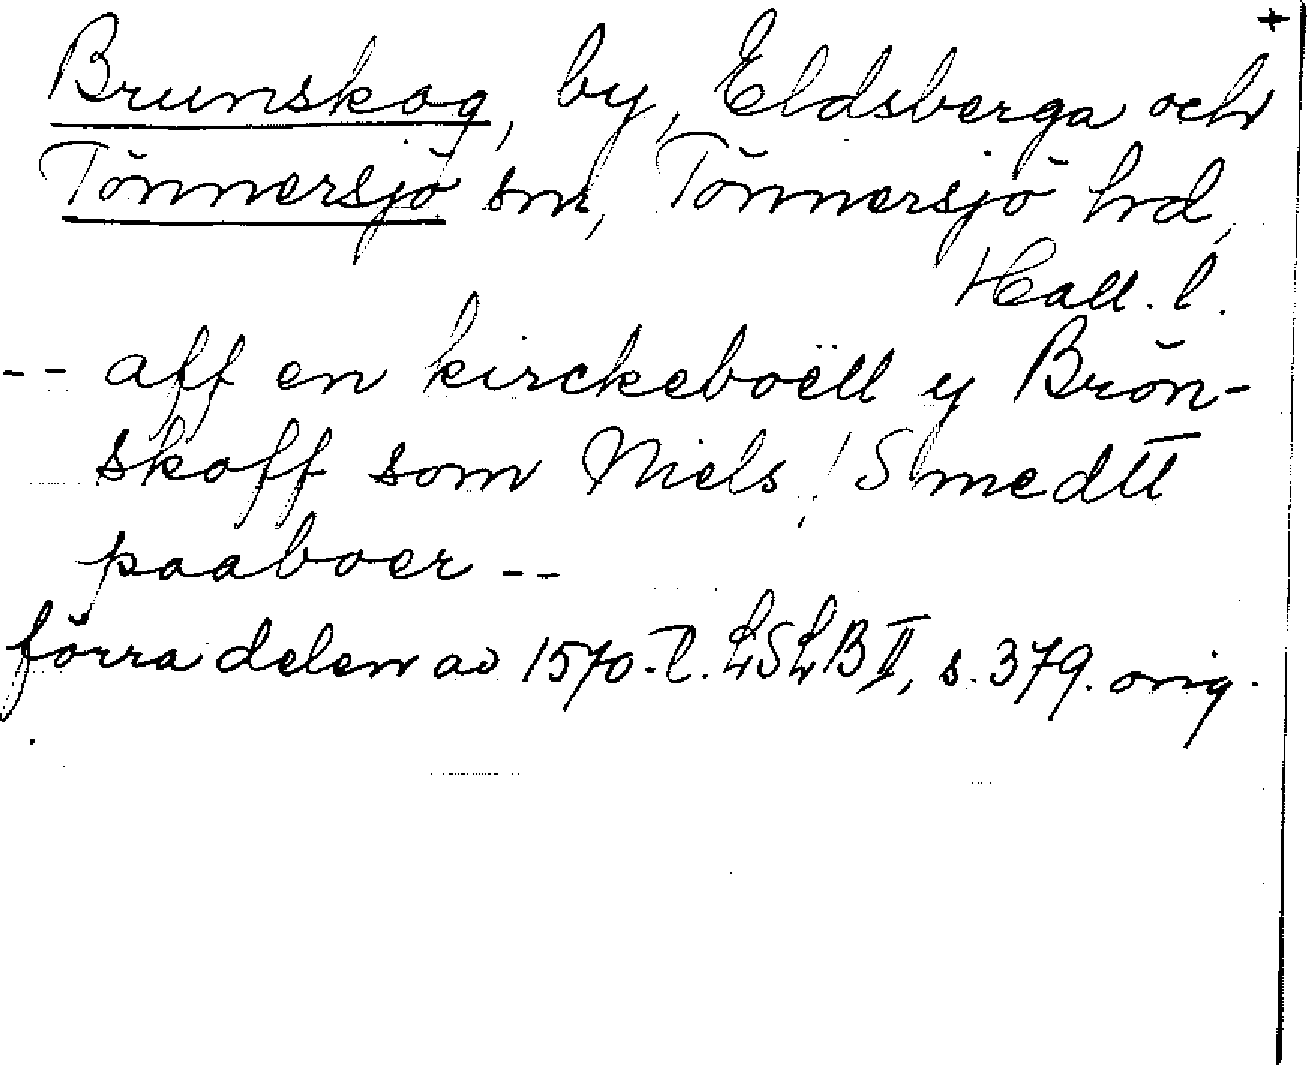 +
Brunskog, by, Eldsberga och
Tönnersjö sn, Tönnersjö hd,
Hall. l.
-- aff en kirckeboëll y Brön-
skoff som Niels ! Smedtt
paaboer --
förra delen av 1570-t. LSLB II, s. 379. orig.